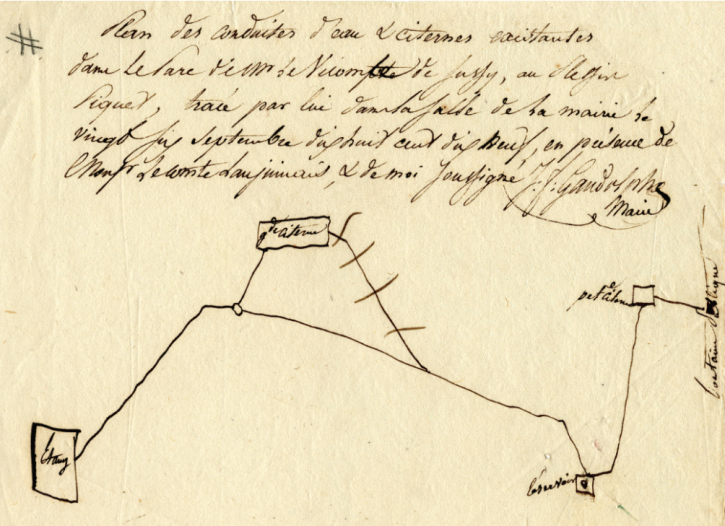 Plan des conduites d'eau & citernes existantes
dans le Parc de Mr le Vicomte de Jussy, au Plessis
Piquet, tracé par lui dans la salle de la mairie le
vingt six Septembre dix huit cent dix Neuf, en présence de
Monsr Le comte Lanjuinais, & de moi soussigné J. F. Gandolphe
Maire
gde Citerne
petite Citerne
fontaine
Etang
Réservoir